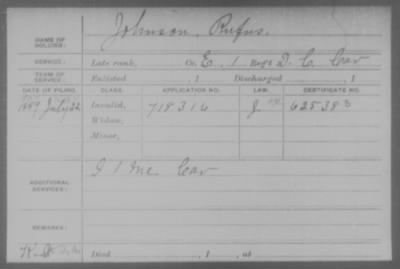 NAME OF SOLDIER: Johnson, Rufus.
SERVICE: Late rank, Co. E, 1 Reg't D. C. Cav
TERM OF SERVICE: Enlisted , 1 Discharged , 1
DATE OF FILING. CLASS. APPLICATION NO. LAW. CERTIFICATE NO.
1889 July 22 Invalid, 718316 J 625383
Widow,
Minor,
ADDITIONAL SERVICES: I 1 Me. Cav
REMARKS:
Died , 1 , at